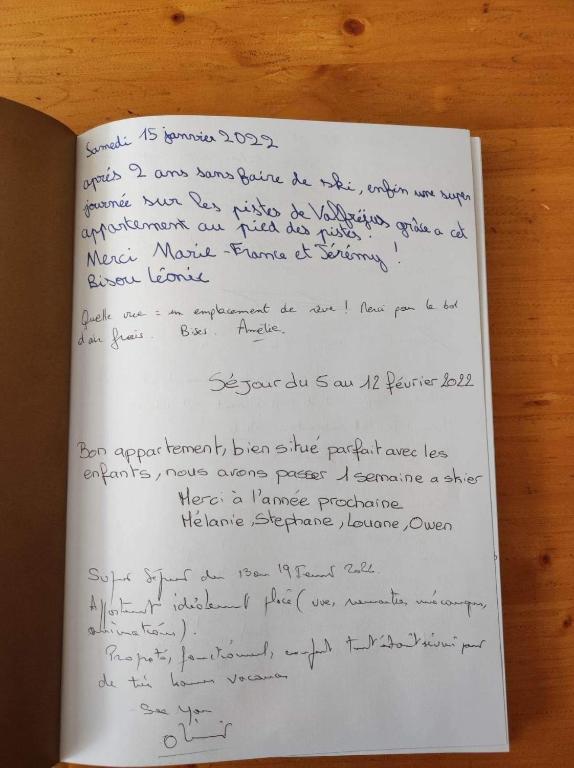 Samedi 15 janvier 2022
après 2 ans sans faire de ski, enfin une super
journée sur les pistes de Valfréjus grâce a cet
appartement au pied des pistes.
Merci Marie-France et Jérémy !
Bisou Léonie
Quelle vue = un emplacement de rêve ! Merci pour le bol
d'air frais. Bises. Amélie.
Séjour du 5 au 12 février 2022
Bon appartement, bien situé parfait avec les
enfants, nous avons passer 1 semaine a skier
Merci à l'année prochaine
Mélanie, Stephane, Louane, Owen
Super Séjour du 13 au 19 Fevrier 2022.
Appartement idéalement placé (vue, remontées mécaniques,
animations).
Propreté, fonctionnel, confort tout était réuni pour
de très bonnes vacances
See you